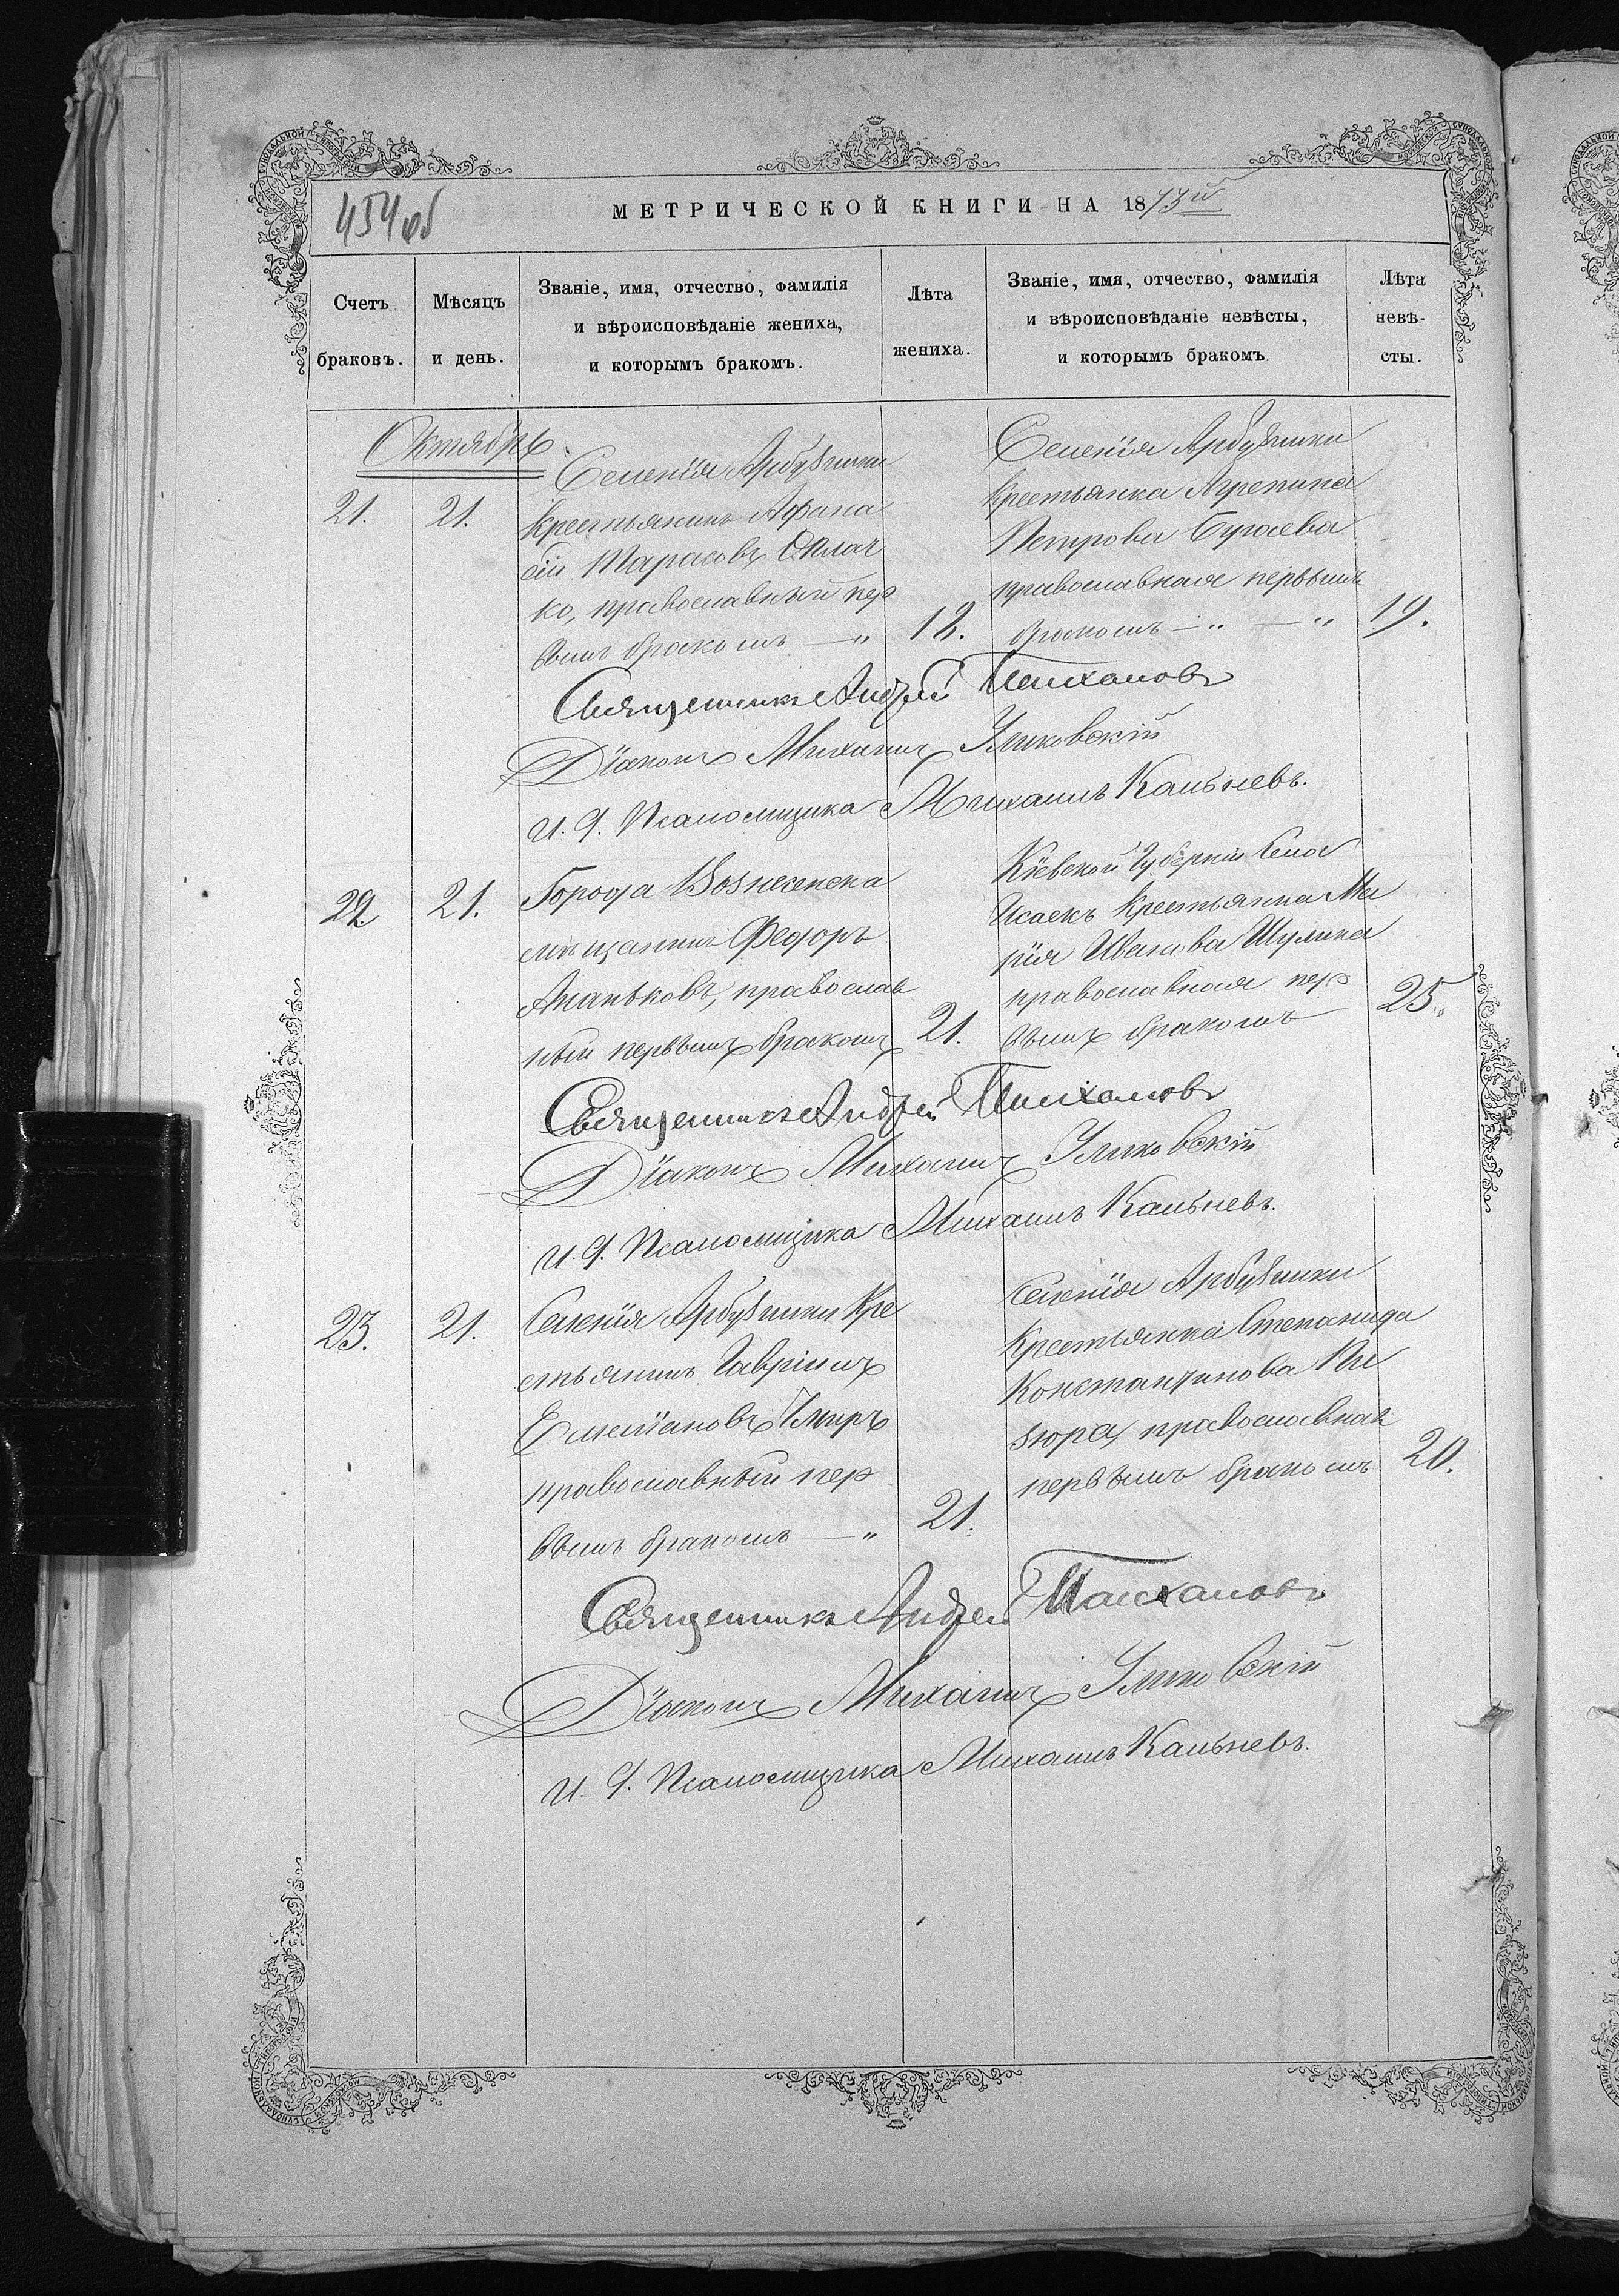 454 об
МЕТРИЧЕСКОЙ КНИГИ НА 1873й
Счетъ браковъ.
Мѣсяцъ и день.
Званіе, имя, отчество, фамилія
и вѣроисповѣданіе жениха,
и которымъ бракомъ.
Лѣта
жениха.
Званіе, имя, отчество, фамилія
и вѣроисповѣданіе невѣсты,
и которымъ бракомъ.
Лѣта
невѣ-
сты.
Октябрь.
21.
21.
Селенія Арбузинки
крестьянинъ Афана
сій Тарасовъ
ко, православный пер
вымъ бракомъ — „
18.
Селенія Арбузинки
крестьянка Агрепина
Петрова Бугаева
православная первымъ
бракомъ — „ — „
19.
Священникъ Андрей
Діаконъ Михаилъ
И. д. Псаломщика Михаилъ Кальневъ.
22
21.
Города Вознесенска
мѣщанинъ Федоръ
Ананьковъ, православ
ный первымъ бракомъ
21.
Кіевской Губерніи Села
Исаекъ крестьянка Ма
рія Иванова Шулика
православная пер
вымъ бракомъ
25.
Священникъ Андрей
Діаконъ Михаилъ
И. д. Псаломщика Михаилъ Кальневъ.
23.
21.
Селенія Арбузинки Кре
стьянинъ Гавріилъ
Емеліановъ
православный пер
вымъ бракомъ — „
21.
Селенія Арбузинки
Крестьянка Степанида
Константинова Пи
зюра, православная
первымъ бракомъ
20.
Священникъ Андрей
Діаконъ Михаилъ
И. д. Псаломщика Михаилъ Кальневъ.